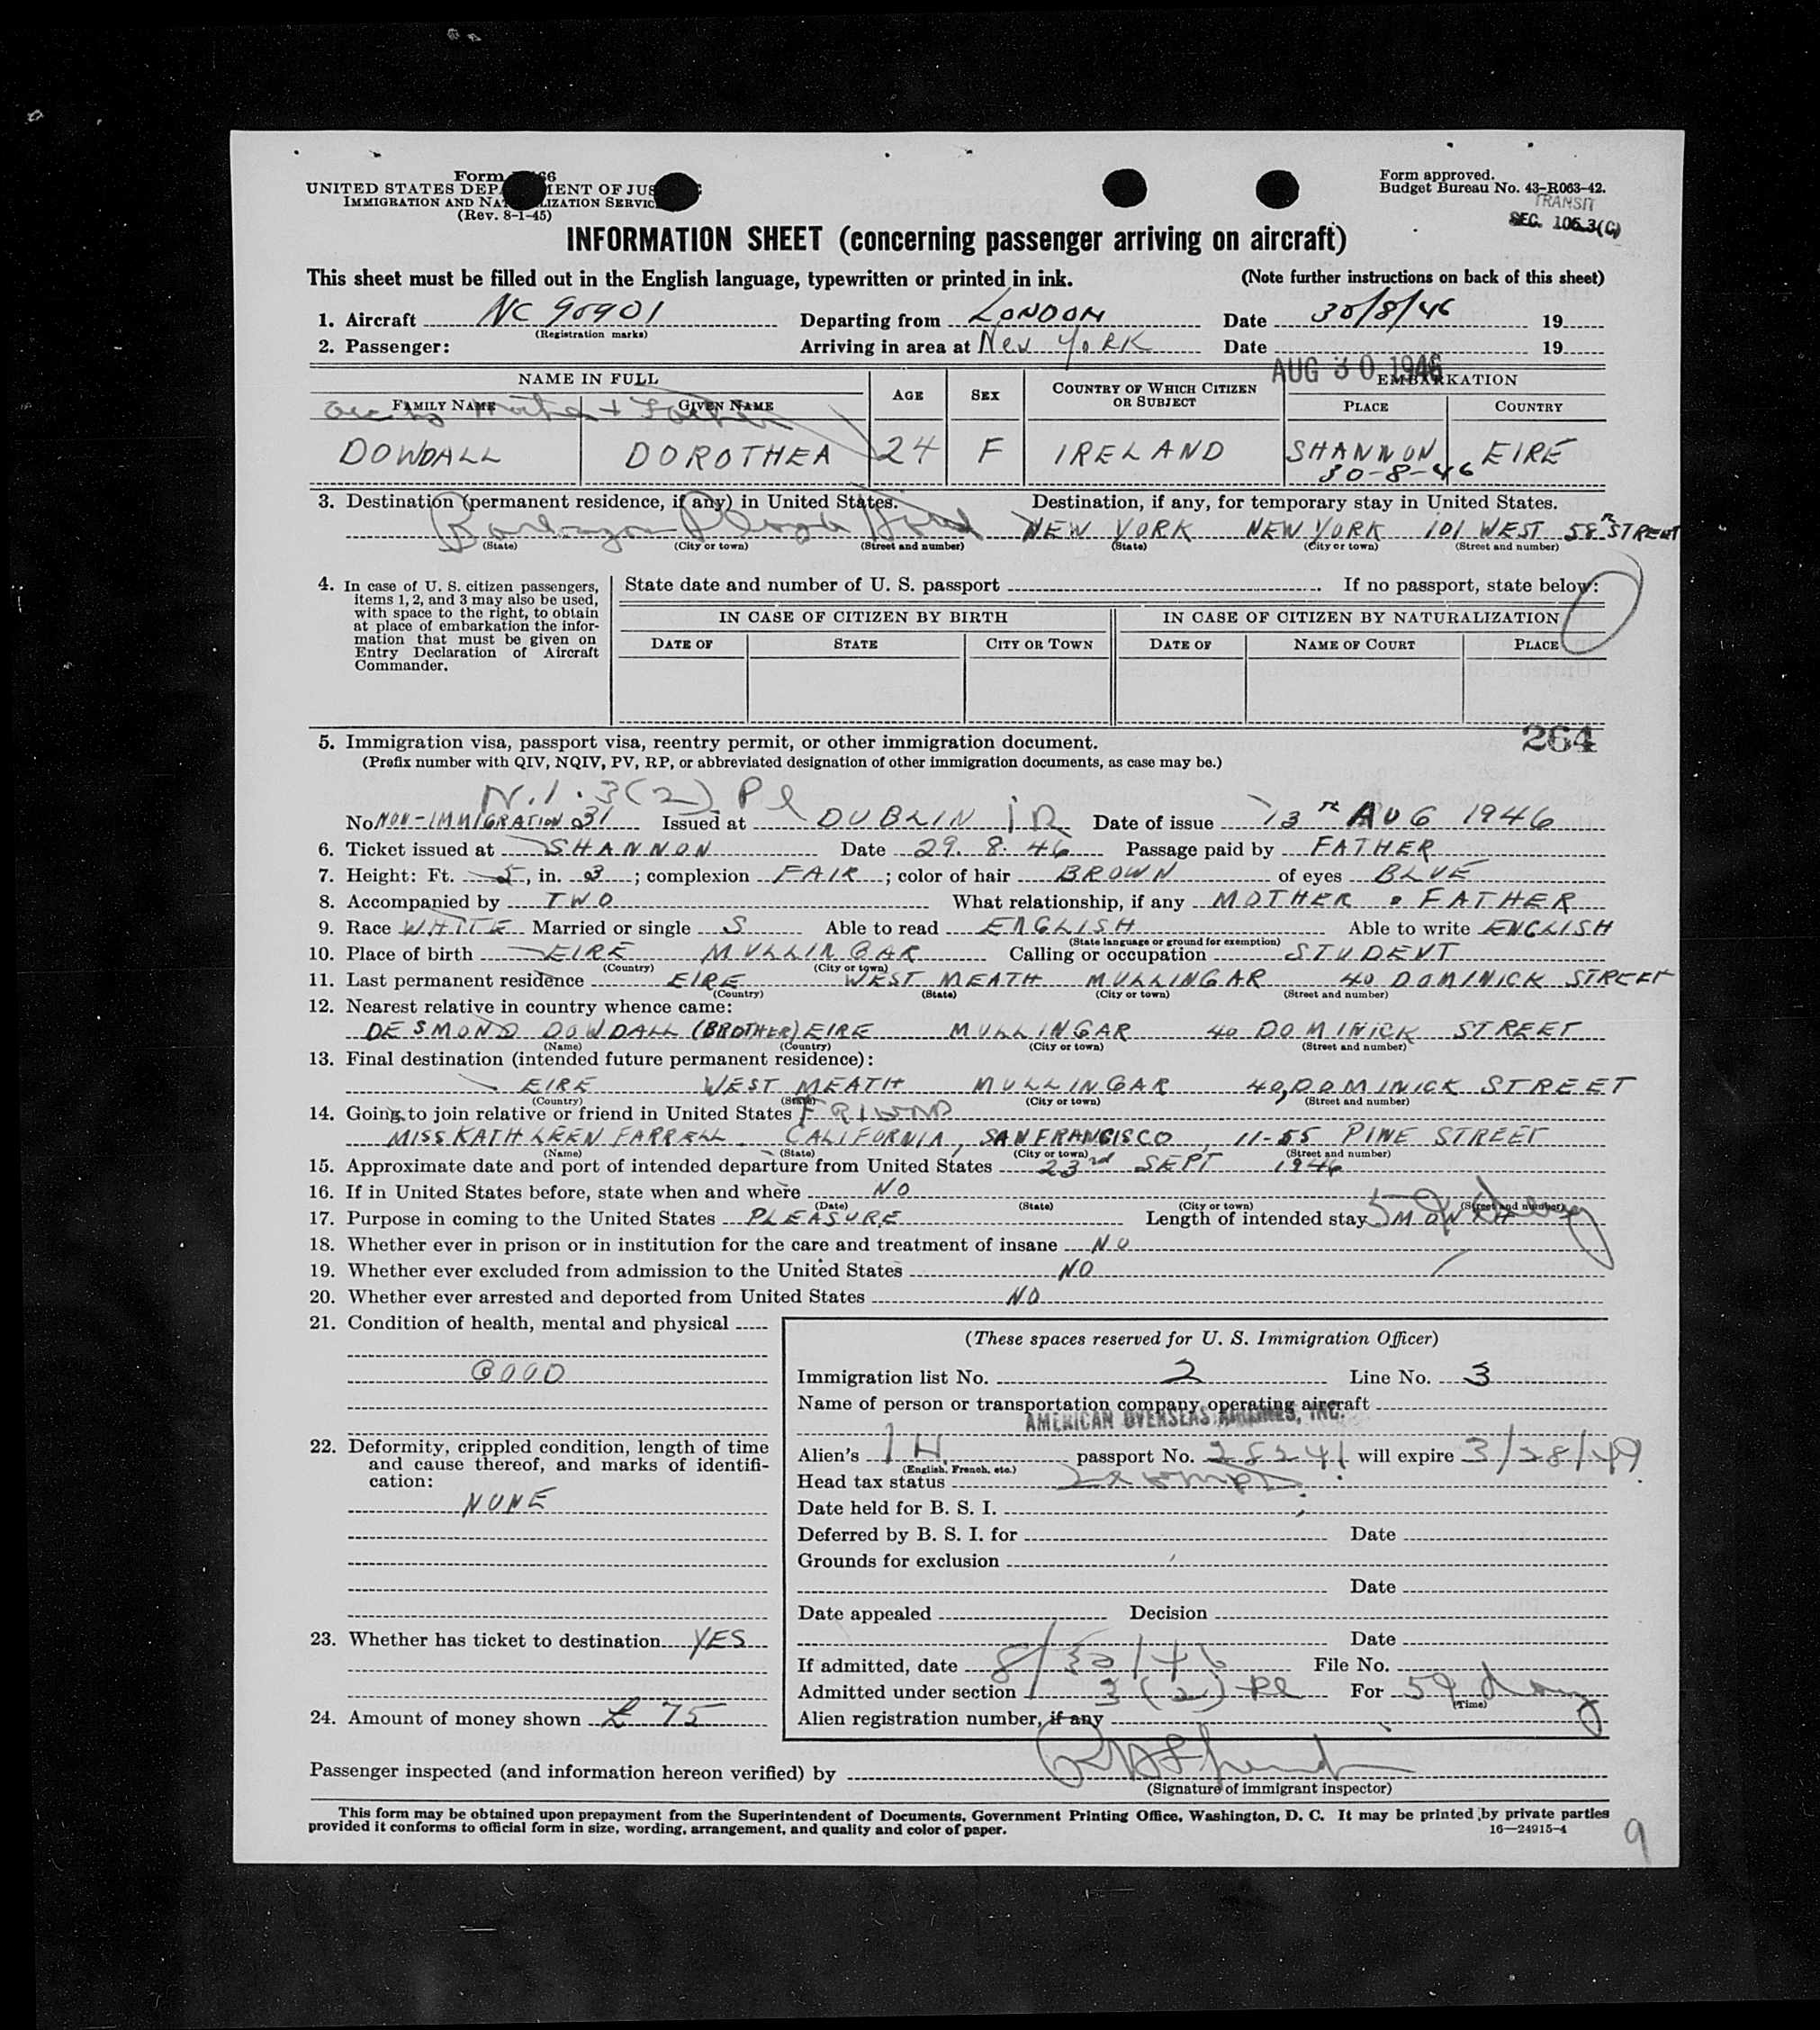 Form 66
UNITED STATES DEPARTMENT OF JUS
IMMIGRATION AND NATURALIZATION SERVIC
(Rev. 8-1-45)
Form approved.
Budget Bureau No. 43-R063-42.
TRANSIT
SEC. 105.3(C)
INFORMATION SHEET (concerning passenger arriving on aircraft)
This sheet must be filled out in the English language, typewritten or printed in ink. (Note further instructions on back of this sheet)
1. Aircraft NC 90901 Departing from LONDON Date 30/8/46 19
(Registration marks)
2. Passenger: Arriving in area at New YORK Date 19
AUG 30 1946
NAME IN FULL AGE SEX COUNTRY OF WHICH CITIZEN OR SUBJECT EMBARKATION
FAMILY NAME GIVEN NAME PLACE COUNTRY
DOWDALL DOROTHEA 24 F IRELAND SHANNON EIRE
30-8-46
3. Destination (permanent residence, if any) in United States. Destination, if any, for temporary stay in United States.
Barbizon Plaza Hotel NEW YORK NEW YORK 101 WEST 58th STREET
(State) (City or town) (Street and number) (State) (City or town) (Street and number)
4. In case of U. S. citizen passengers, items 1, 2, and 3 may also be used, with space to the right, to obtain at place of embarkation the information that must be given on Entry Declaration of Aircraft Commander.
State date and number of U. S. passport If no passport, state below:
IN CASE OF CITIZEN BY BIRTH IN CASE OF CITIZEN BY NATURALIZATION
DATE OF STATE CITY OR TOWN DATE OF NAME OF COURT PLACE
264
5. Immigration visa, passport visa, reentry permit, or other immigration document.
(Prefix number with QIV, NQIV, PV, RP, or abbreviated designation of other immigration documents, as case may be.)
N.I. 3(2) Pl
No NON-IMMIGRATION 231 Issued at DUBLIN IR Date of issue 13th AUG 1946
6. Ticket issued at SHANNON Date 29. 8. 46 Passage paid by FATHER
7. Height: Ft. 5, in. 3; complexion FAIR; color of hair BROWN of eyes BLUE
8. Accompanied by TWO What relationship, if any MOTHER & FATHER
9. Race WHITE Married or single S Able to read ENGLISH Able to write ENGLISH
(State language or ground for exemption)
10. Place of birth EIRE MULLINGAR Calling or occupation STUDENT
(Country) (City or town)
11. Last permanent residence EIRE WEST MEATH MULLINGAR 40 DOMINICK STREET
(Country) (State) (City or town) (Street and number)
12. Nearest relative in country whence came:
DESMOND DOWDALL (BROTHER) EIRE MULLINGAR 40 DOMINICK STREET
(Name) (Country) (City or town) (Street and number)
13. Final destination (intended future permanent residence):
EIRE WEST MEATH MULLINGAR 40, DOMINICK STREET
(Country) (State) (City or town) (Street and number)
14. Going to join relative or friend in United States FRIEND
MISS KATHLEEN FARRELL. CALIFORNIA, SAN FRANCISCO, 11-55 PINE STREET
(Name) (State) (City or town) (Street and number)
15. Approximate date and port of intended departure from United States 23rd SEPT 1946
16. If in United States before, state when and where NO
(Date) (State) (City or town) (Street and number)
17. Purpose in coming to the United States PLEASURE Length of intended stay MONTH
18. Whether ever in prison or in institution for the care and treatment of insane NO
19. Whether ever excluded from admission to the United States NO
20. Whether ever arrested and deported from United States NO
21. Condition of health, mental and physical
GOOD
22. Deformity, crippled condition, length of time and cause thereof, and marks of identification:
NONE
23. Whether has ticket to destination YES
24. Amount of money shown £ 75
(These spaces reserved for U. S. Immigration Officer)
Immigration list No. 2 Line No. 3
Name of person or transportation company operating aircraft
AMERICAN OVERSEAS AIRLINES, INC.
Alien's passport No. 28241 will expire 3/28/49
(English, French, etc.)
Head tax status Exempt
Date held for B. S. I.
Deferred by B. S. I. for Date
Grounds for exclusion
Date
Date appealed Decision
Date
If admitted, date 8/30/46 File No.
Admitted under section 3(2) Pl For 59 days
(Time)
Alien registration number, if any
Passenger inspected (and information hereon verified) by
(Signature of immigrant inspector)
This form may be obtained upon prepayment from the Superintendent of Documents, Government Printing Office, Washington, D. C. It may be printed by private parties
provided it conforms to official form in size, wording, arrangement, and quality and color of paper. 16—24915-4
9